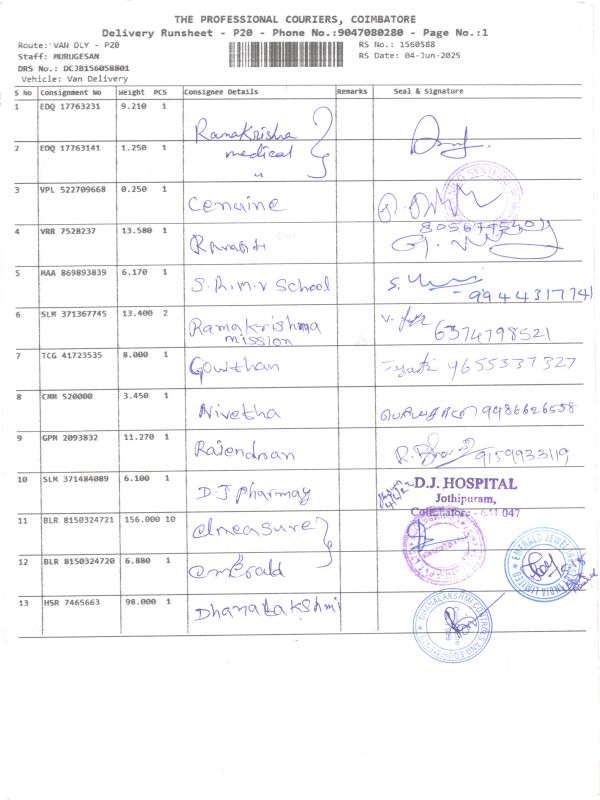 THE PROFESSIONAL COURIERS, COIMBATORE
Delivery Runsheet - P20 - Phone No.:9047080280 - Page No.:1
Route: VAN DLY - P20 RS No.: 1560588
Staff: MURUGESAN RS Date: 04-Jun-2025
DRS No.: DCJB156058801
Vehicle: Van Delivery
S No Consignment No Weight PCS Consignee Details Remarks Seal & Signature
1 EDQ 17763231 9.210 1 Ramakrisha
2 EDQ 17763141 1.250 1 medical
3 VPL 522709668 0.250 1 Cenuine
4 VRR 7528237 13.580 1
5 MAA 869893839 6.170 1 S.R.M.V School 9944317741
6 SLM 371367745 13.400 2 Ramakrishma 6374798521
mission
7 TCG 41723535 8.000 1 Gowthan 9655537327
8 CMM 520000 3.450 1 Nivetha 9486626558
9 GPM 2093832 11.270 1 Rajendran 9159933119
10 SLM 371484089 6.100 1 D J pharmay D.J. HOSPITAL
Jothipuram,
Coimbatore - 641 047
11 BLR 8150324721 156.000 10 elmeasure
12 BLR 8150324720 6.880 1 emerald
13 HSR 7465663 98.000 1 Dhanalakshmi